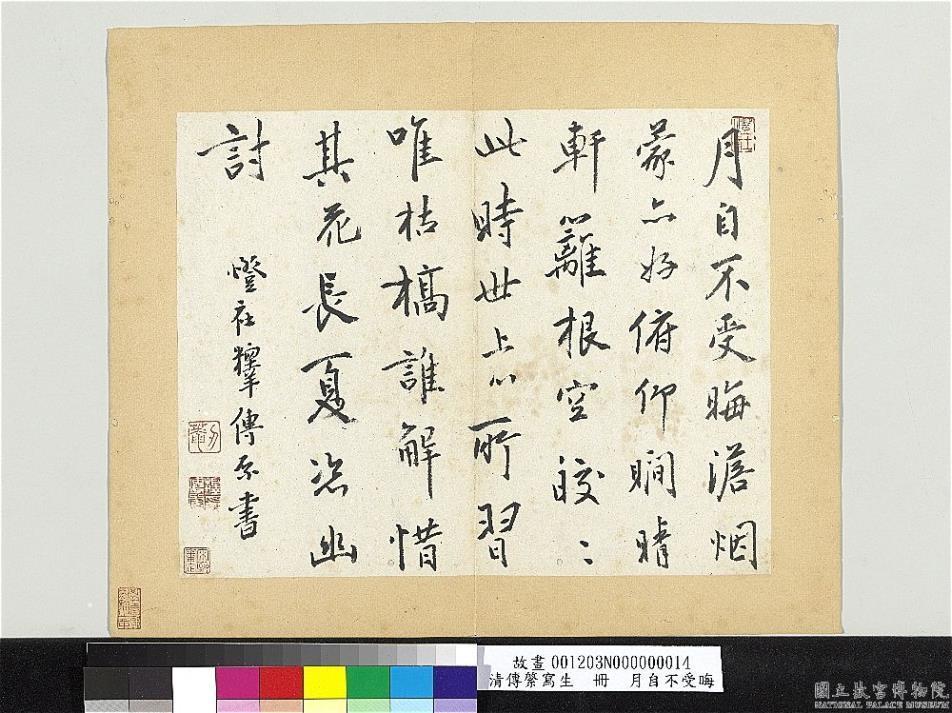 月自不受晦澹烟
蒙亦好俯仰瞷晴
軒籬根空皎〻
此時世上心所習
唯枯槁誰解惜
其花長夏恣幽
討
燈社釋傳 書
故畫001203N000000014
清傳縈寫生 冊 月自不受晦
國立故宮博物院
NATIONAL PALACE MUSEUM